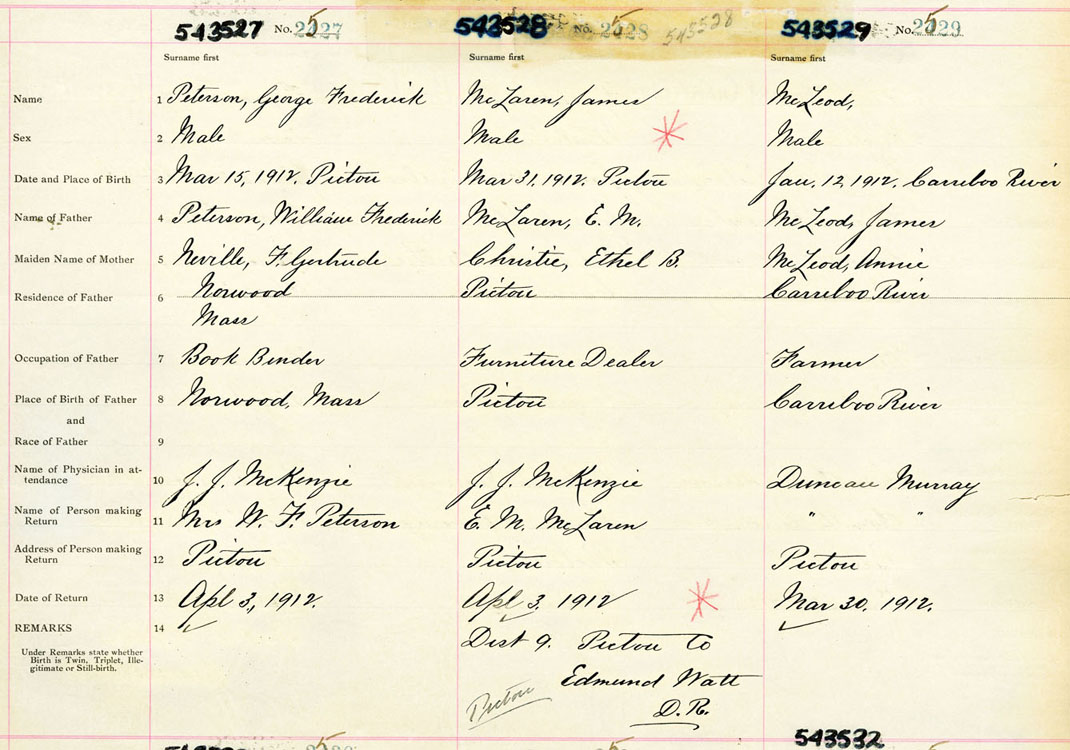 543527 No. 2527
543528 No. 2528 545528
543529 No. 2529
Surname first Surname first Surname first
Name 1 Peterson, George Frederick McLaren, James McLeod,
Sex 2 Male Male Male
Date and Place of Birth 3 Mar 15, 1912. Pictou Mar 31, 1912. Pictou Jan. 12, 1912. Carriboo River
Name of Father 4 Peterson, William Frederick McLaren, E. M. McLeod, James
Maiden Name of Mother 5 Neville, F. Gertrude Christie, Ethel B. McLeod, Annie
Residence of Father 6 Norwood Pictou Carriboo River
Mass
Occupation of Father 7 Book Binder Furniture Dealer Farmer
Place of Birth of Father 8 Norwood, Mass Pictou Carriboo River
and
Race of Father 9
Name of Physician in at-
tendance 10 J. J. McKenzie J. J. McKenzie Duncan Murray
Name of Person making
Return 11 Mrs W. F. Peterson E. M. McLaren " "
Address of Person making
Return 12 Pictou Pictou Pictou
Date of Return 13 Apl 3, 1912. Apl 3. 1912 Mar 30. 1912.
REMARKS 14
Under Remarks state whether
Birth is Twin, Triplet, Ille-
gitimate or Still-birth.
Dist 9. Pictou Co
Edmund Watt
D. R.
Pictou
543532